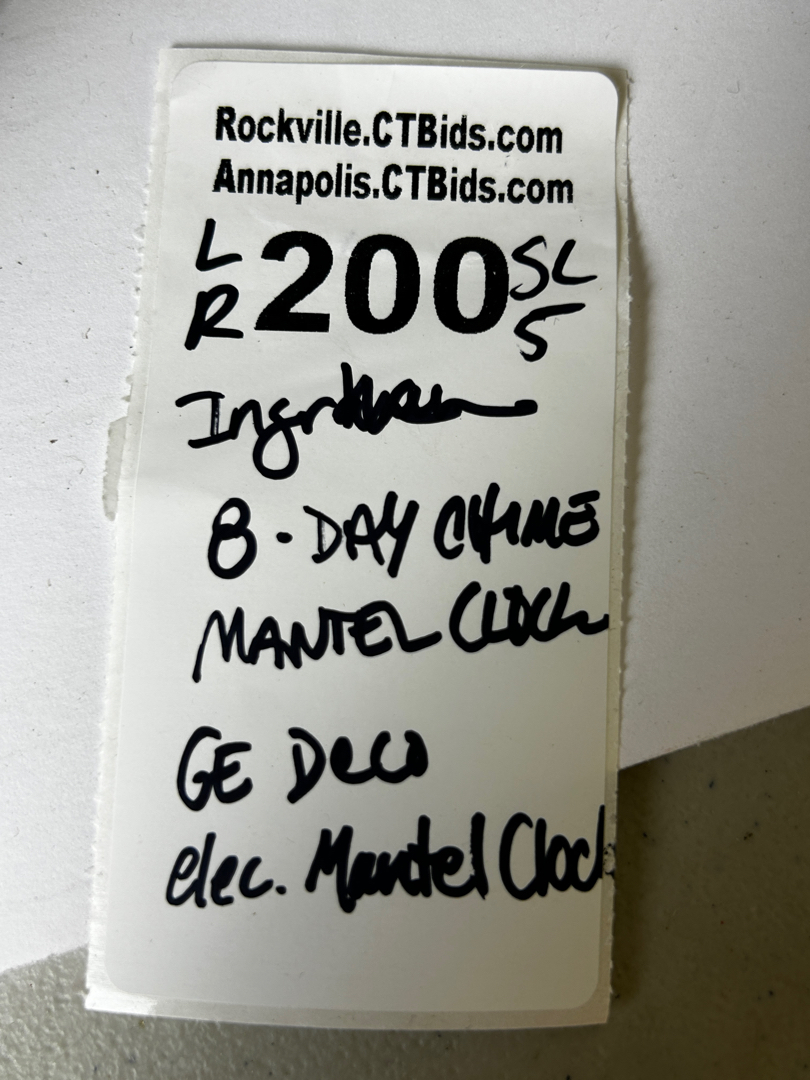 Rockville.CTBids.com
Annapolis.CTBids.com
L 200 SL
R S
8-DAY CHIME
MANTEL CLOCK
GE Deco
elec. Mantel Clock